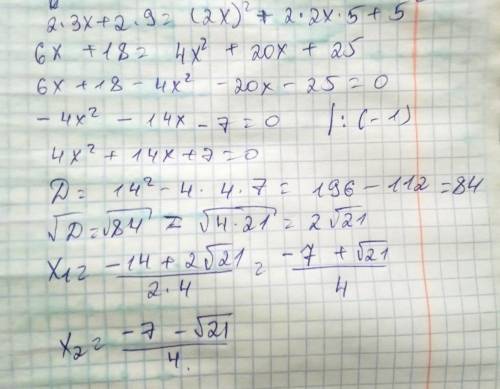 2·3x+2·9= (2x)²+ 2·2x·5+5²
6x +18= 4x² + 20x + 25
6x+18-4x² -20x-25=0
-4x² -14x-7=0 |:(-1)
4x²+14x+7=0
D= 14²-4·4·7= 196-112=84
√D=√84 = √4·21= 2√21
x₁= (-14+2√21)/(2·4) = (-7+√21)/4
x₂= (-7-√21)/4.